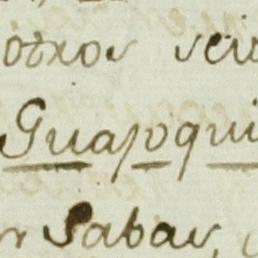 otros seis
Guapoqui
r Sabav,